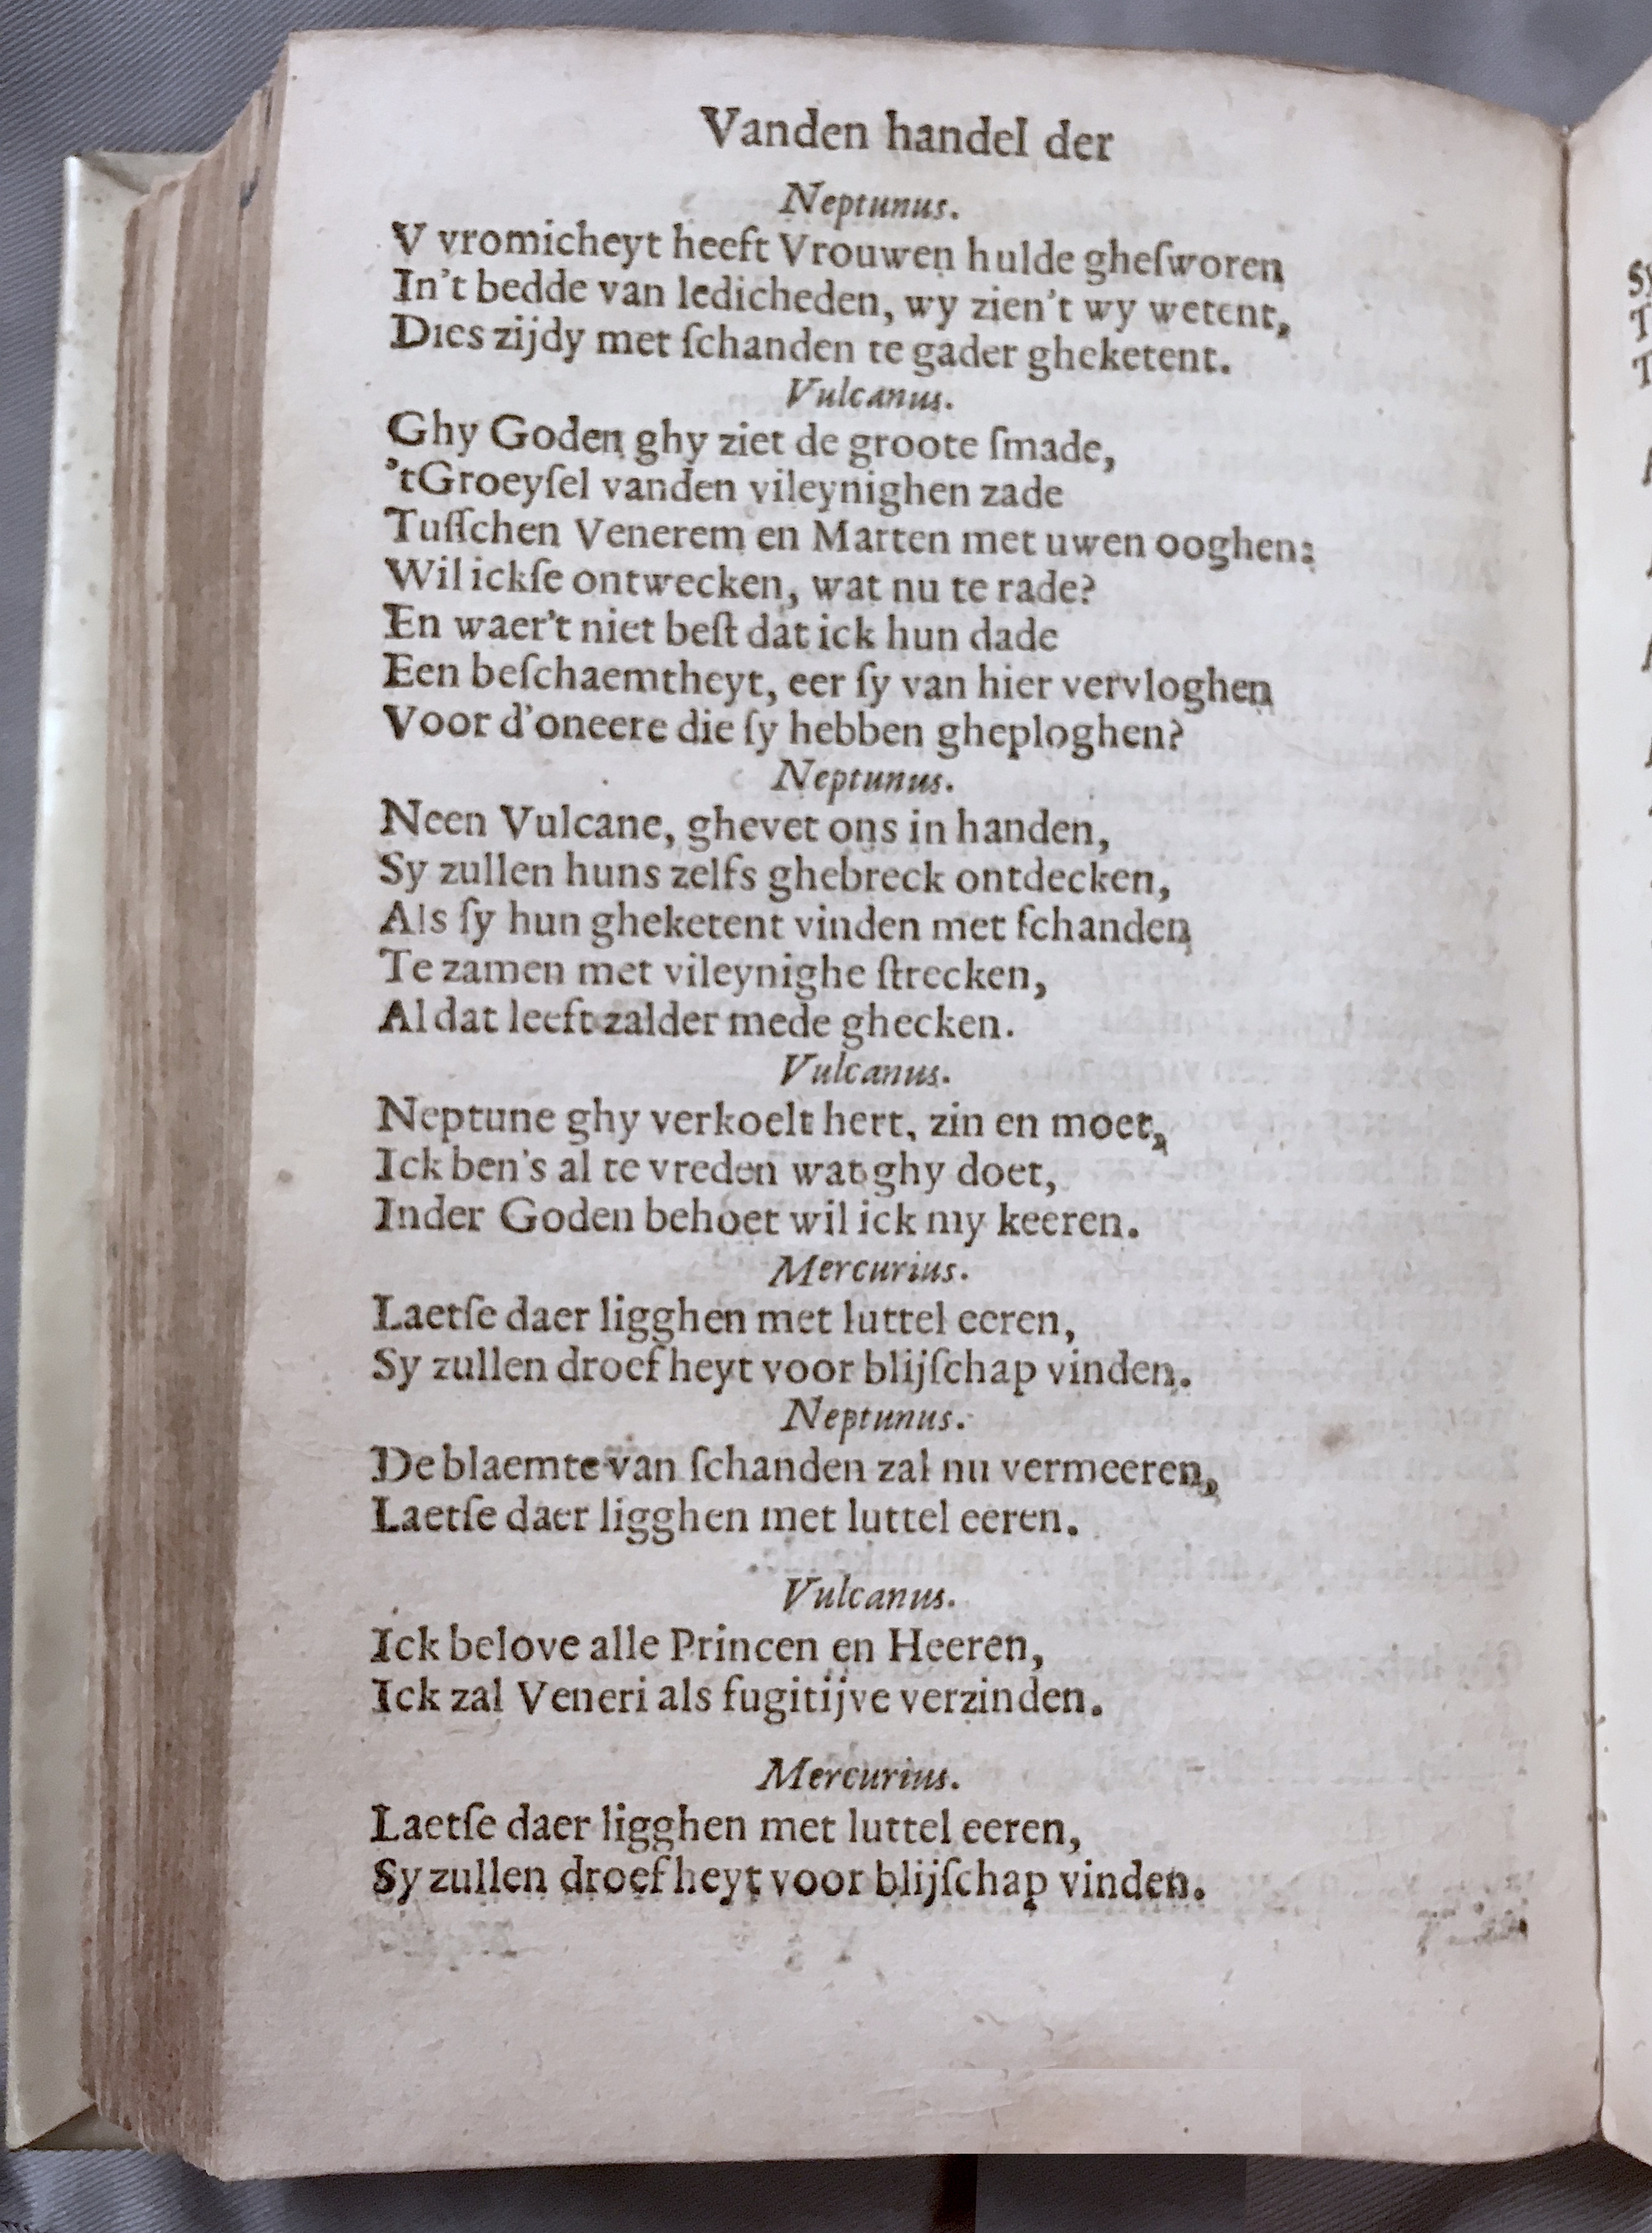 Vanden handel der
Neptunus.
V vromicheyt heeft Vrouwen hulde gheſworen
In't bedde van ledicheden, wy zien't wy wetent,
Dies zijdy met ſchanden te gader gheketent.
Vulcanus.
Ghy Goden ghy ziet de groote ſmade,
'tGroeyſel vanden vileynighen zade
Tuſſchen Venerem en Marten met uwen ooghen:
Wil ickſe ontwecken, wat nu te rade?
En waer't niet beſt dat ick hun dade
Een beſchaemtheyt, eer ſy van hier vervloghen
Voor d'oneere die ſy hebben gheploghen?
Neptunus.
Neen Vulcane, ghevet ons in handen,
Sy zullen huns zelfs ghebreck ontdecken,
Als ſy hun gheketent vinden met ſchanden
Te zamen met vileynighe ſtrecken,
Al dat leeft zalder mede ghecken.
Vulcanus.
Neptune ghy verkoelt hert, zin en moet,
Ick ben's al te vreden wat ghy doet,
Inder Goden behoet wil ick my keeren.
Mercurius.
Laetſe daer ligghen met luttel eeren,
Sy zullen droefheyt voor blijſchap vinden.
Neptunus.
De blaemte van ſchanden zal nu vermeeren,
Laetſe daer ligghen met luttel eeren.
Vulcanus.
Ick belove alle Princen en Heeren,
Ick zal Veneri als fugitijve verzinden.
Mercurius.
Laetſe daer ligghen met luttel eeren,
Sy zullen droefheyt voor blijſchap vinden.